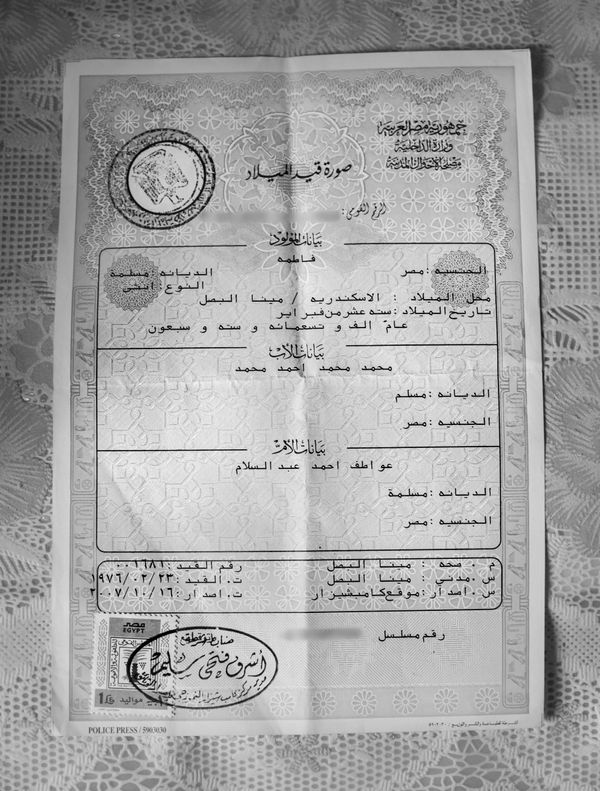 جمهورية مصر العربية
وزارة الداخلية
مصلحة الأحوال المدنية
صورة قيد الميلاد
الرقم القومى:
بيانات المولود
فاطمه
الجنسيه :مصر الديانه :مسلمة
النوع :انثى
محل الميلاد : الاسكندريه / مينا البصل
تاريخ الميلاد: سته عشر من فبراير
عام الف و تسعمائه و سته و سبعون
بيانات الأب
محمد محمد احمد محمد
الديانه :مسلم
الجنسيه :مصر
بيانات الأم
عواطف احمد عبدالسلام
الديانه :مسلمة
الجنسيه :مصر
م . صحه : مينا البصل رقم القيد :٠٠١٦٨١
س.مدني : مينا البصل ت. القيد :١٩٧٦/٠٢/٢٣
س. اصدار : موقع كامبشيزار ت. اصدار :٢٠٠٧/١٠/١٦
رقم مسلسل
مصر
EGYPT
أشرف فتحى سليم
مواليد
POLICE PRESS / 5903030